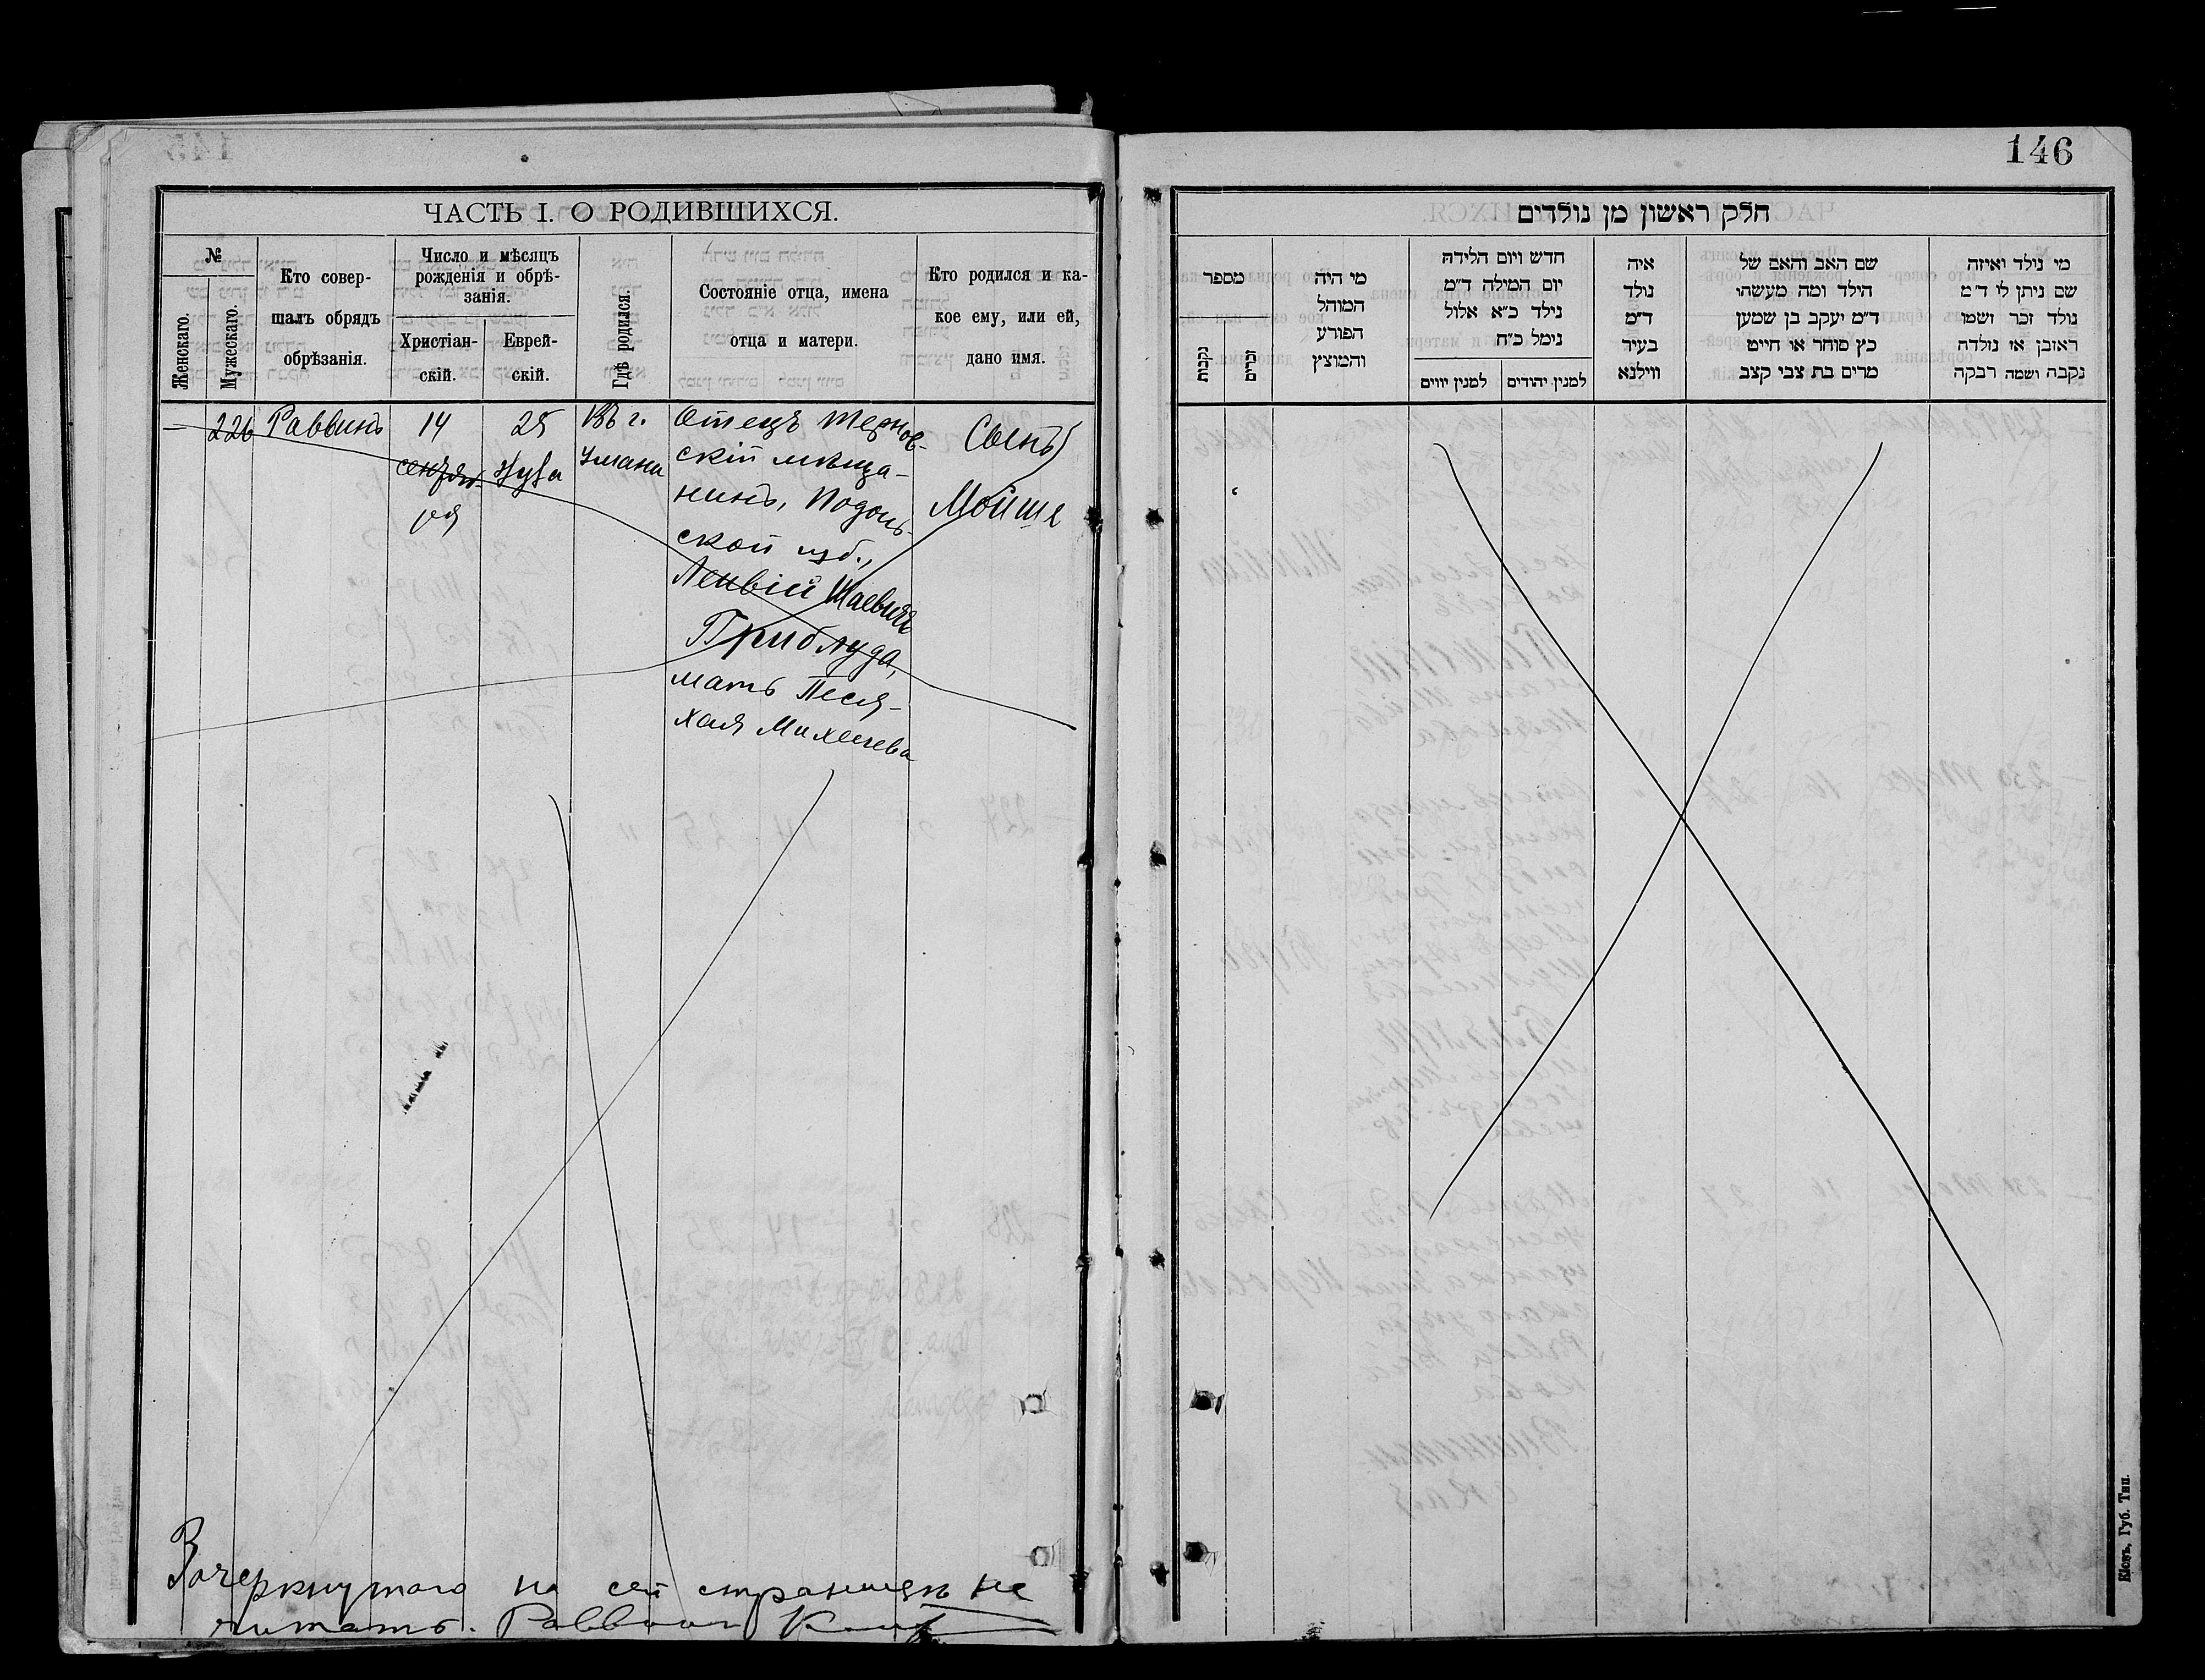 146
ЧАСТЬ I. О РОДИВШИХСЯ.
№
Женскаго.
Мужескаго.
Кто совер-
шалъ обрядъ
обрѣзанія.
Число и мѣсяцъ
рожденія и обрѣ-
занія.
Христіан-
скій.
Еврей-
скій.
Гдѣ родился.
Состояніе отца, имена
отца и матери.
Кто родился и ка-
кое ему, или ей,
дано имя.
— 226
Раввинъ
14
сентяб-
ря
25
Въ г.
Умани
Отецъ Тернов-
скій мѣща-
нинъ, Подоль-
ской губ.,
Лейвій Шаевичъ
Приблуда,
мать Песя-
Хая
Сынъ
Мойше
Зачеркнутого на сей страницѣ не
читать. Раввин
חלק ראשון מן נולדים
מספר
נקבות
זכרים
מי היה
המוהל
הפורע
והמוצץ
חדש ויום הלידה
יום המילה ד״מ
נילד כ״א אלול
נימל כ״ח
למנין יווים
למנין יהודים
איה
נולד
ד״מ
בעיר
ווילנא
שם האב והאם של
הילד ומה מעשהו
ד״מ יעקב בן שמען
כץ סוחר או חייט
מרים בת צבי קצב
מי נולד ואיזה
שם ניתן לי ד״מ
נולד זכר ושמו
ראובן או נולדה
נקבה ושמה רבקה
Кіевъ, Губ. Тип.